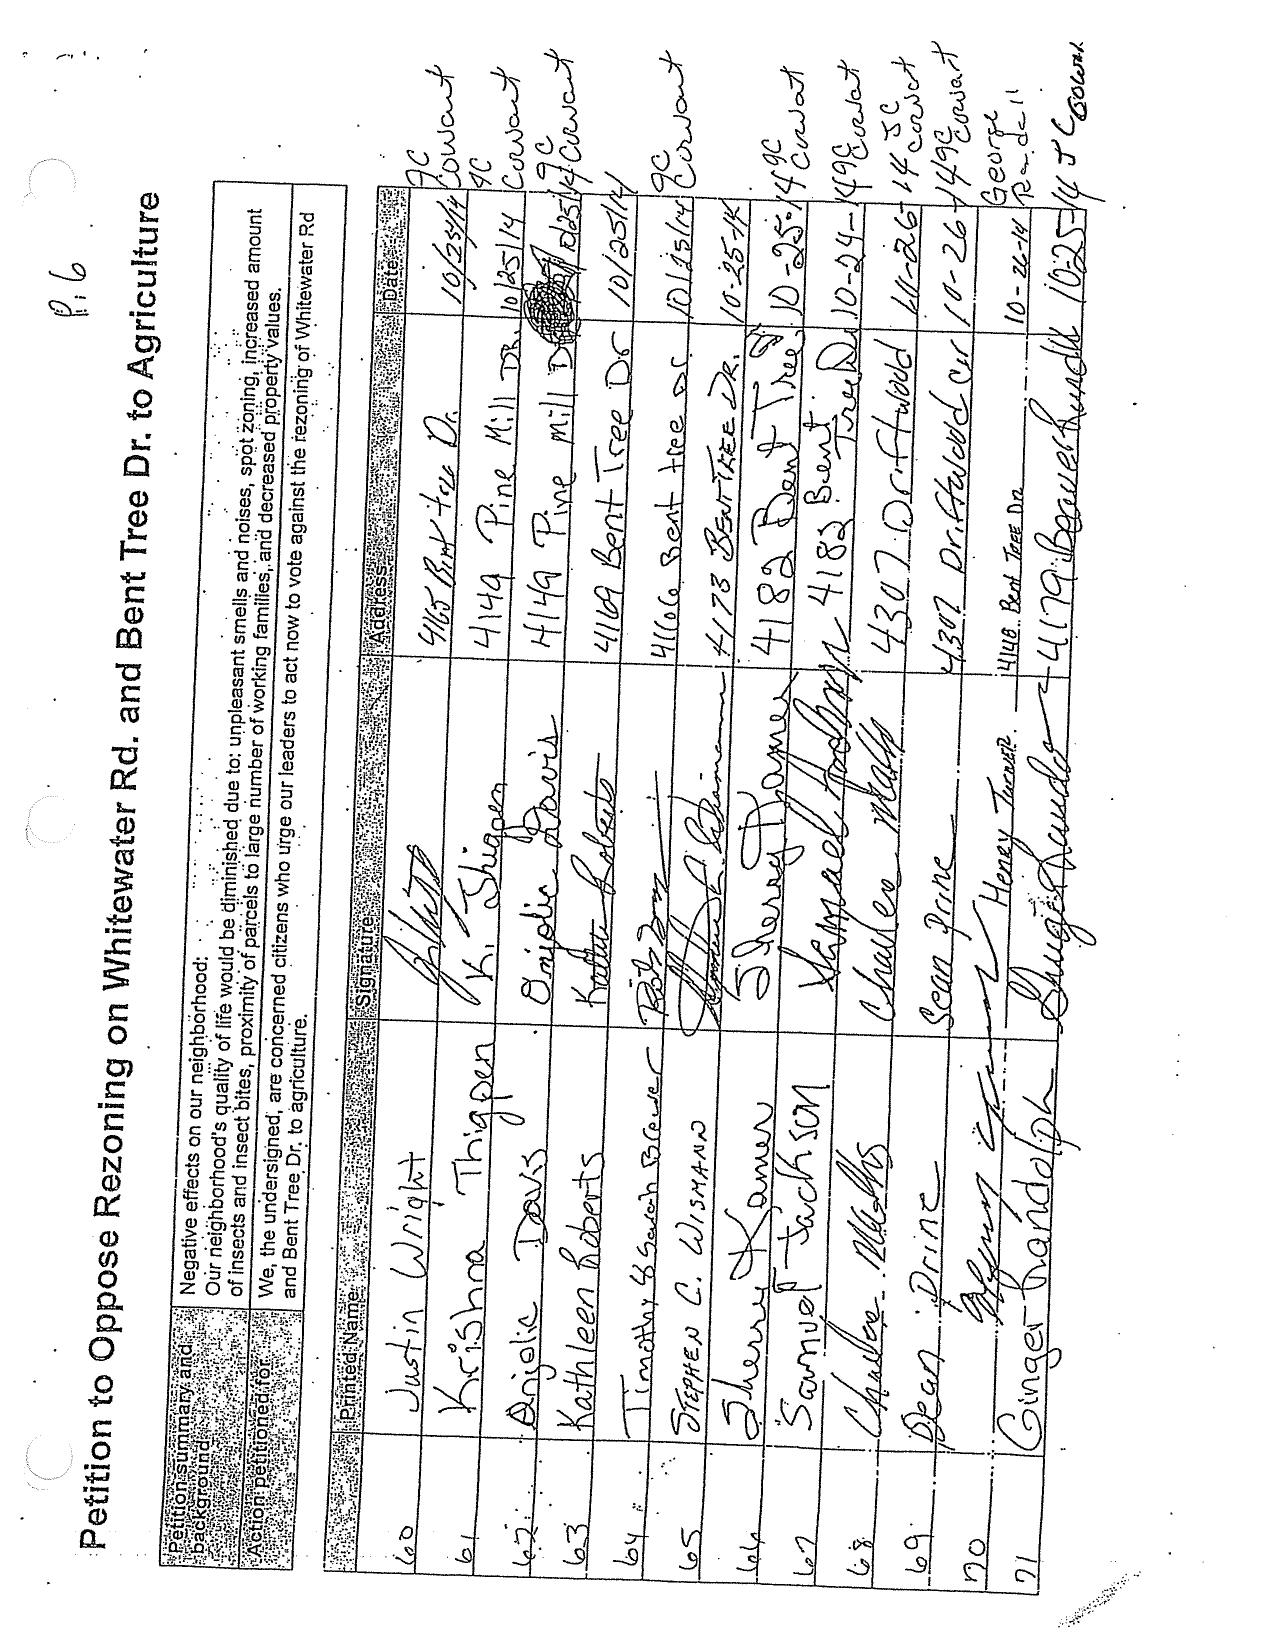 P. 6
Petition to Oppose Rezoning on Whitewater Rd. and Bent Tree Dr. to Agriculture
Petition summary and background
Negative effects on our neighborhood:
Our neighborhood's quality of life would be diminished due to: unpleasant smells and noises, spot zoning, increased amount
of insects and insect bites, proximity of parcels to large number of working families, and decreased property values.
Action petitioned for
We, the undersigned, are concerned citizens who urge our leaders to act now to vote against the rezoning of Whitewater Rd
and Bent Tree Dr. to agriculture.
Printed Name Signature Address Date
60 Justin Wright 4165 Dr. 10/25/14 Cowart
61 Krishna Thigpen K. Thigpen 4149 Pine Mill Dr. 10/25/14 Cowart
62 Anjolic Davis Anjolic Davis 4149 Pine Mill D 10/25/14 Cowart
63 Kathleen Roberts Roberts 4169 Bent Tree Dr 10/25/14
64 Timothy & Sarah Brewer 4166 Bent tree Dr 10/25/14 Cowart
65 STEPHEN C. WISMANN 4173 BENT TREE DR. 10-25-14
66 Sherry Kamer Sherry 4182 Bent Tree 10-25-14 Cowart
67 Samuel Jackson 4182 Bent Tree Dr 10-24-14 Cowart
68 Charles 4307 Driftwood 10-26-14 JC Cowart
69 Dean Prine Sean Prine 4307 Driftwood Cir 10-26-14 Cowart
70 HENRY TURNER 4148 Bent TREE DR 10-26-14 George Randall
71 Ginger Randolph 4179 Beaver 10-25-14 JC